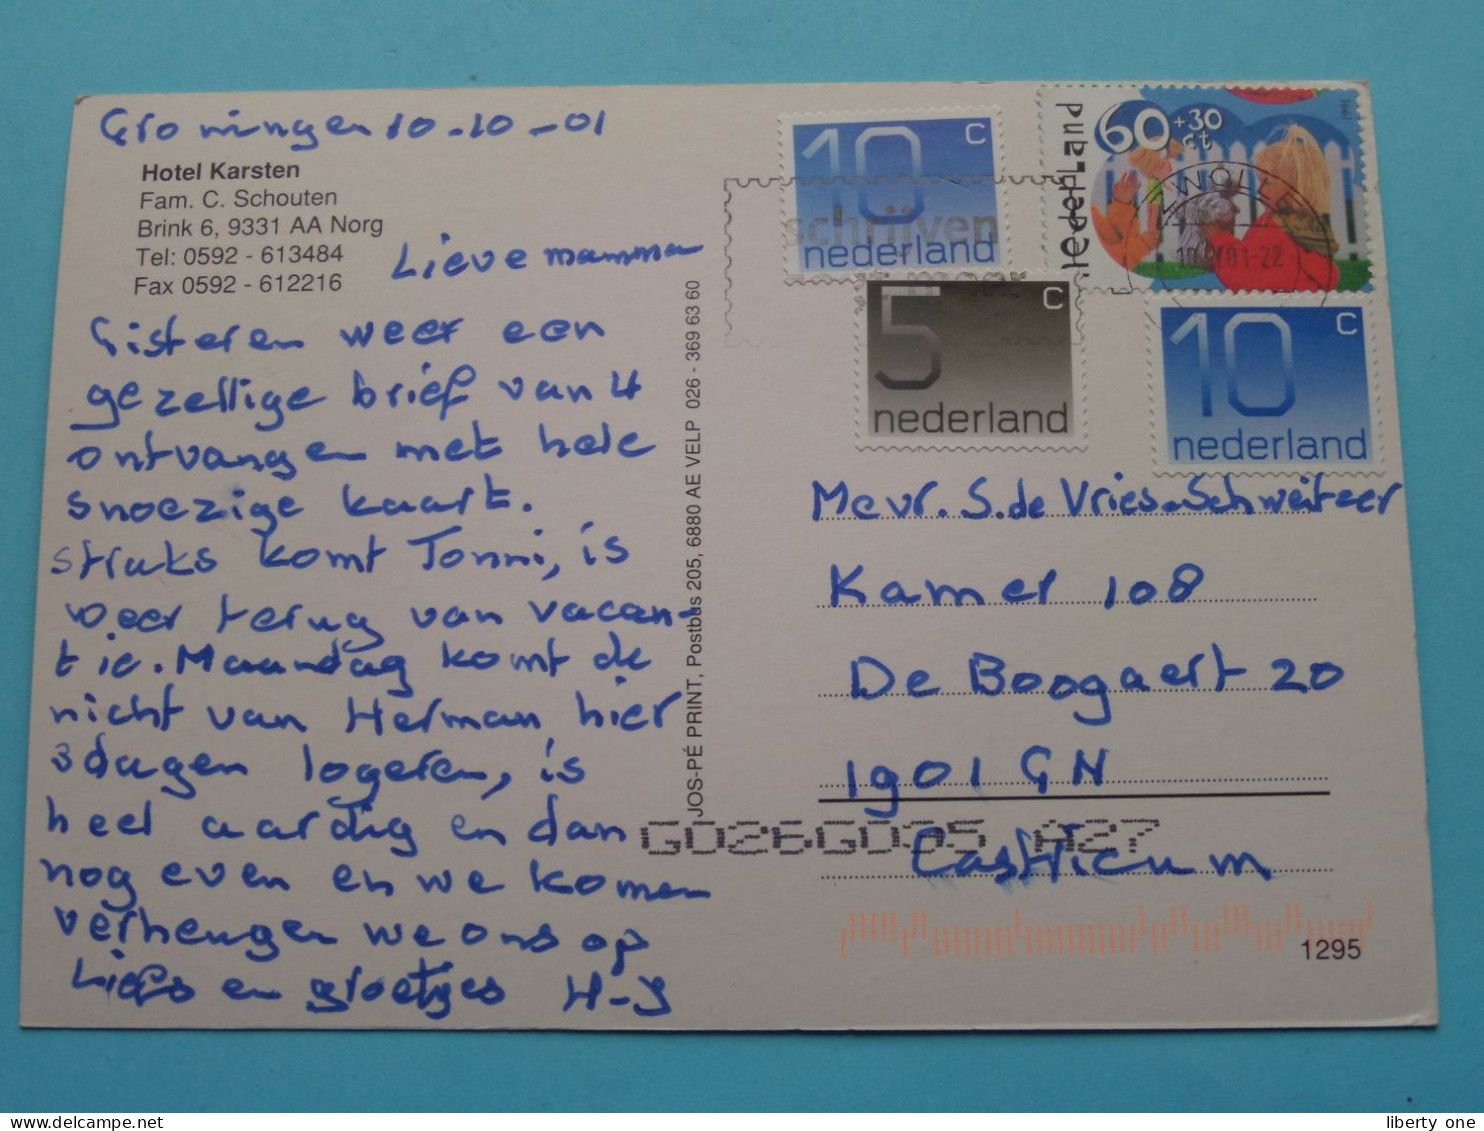 Groningen 10-10-01
Hotel Karsten
Fam. C. Schouten
Brink 6, 9331 AA Norg
Tel: 0592 - 613484
Fax 0592 - 612216
Lieve mamma
Gisteren weer een
gezellige brief van U
ontvangen met hele
snoezige kaart.
straks komt Tonni, is
weer terug van vacan-
tie. Maandag komt de
nicht van Herman, hier
3 dagen logeren, is
heel aardig en dan
nog even en we komen
verheugen we ons op
Liefs en groetjes H-J
JOS-PÉ PRINT, Postbus 205, 6880 AE VELP 026 - 369 63 60
10 c
nederland
schrijven
5 c
nederland
60 +30 ct
nederland
1991
ZWOLLE
10 c
nederland
Mevr. S. de Vries-Schweitzer
Kamer 108
De Boogaert 20
1901 GN
Castricum
G026G035 A27
1295
liberty one